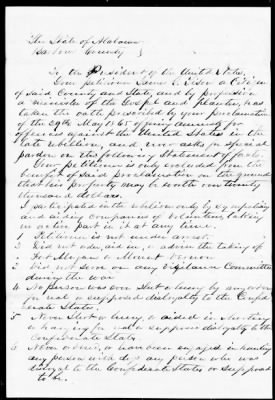 The State of Alabama
Barbour County }
To the President of the United States,
Your petitioner James L. a Citizen
of said County and State, and by profession
a minister of the Gospel and planter, has
taken the oath prescribed by your proclamation
of the 29th May 1865 of giving amnesty for
offences against the United States in the
late rebellion, and now asks for special
pardon on the following Statement of facts.
Your petitioner is only excluded from the
benefit of said Proclamation on the ground
that his property may be worth over twenty
thousand dollars.
1 participated in the rebellion only by sympathizing
and aiding companies of Volunteers, taking
no active part in it at any time.
Petitioner is not under arrest.
2 Did not order, aid in, or advise the taking of
Fort Morgan or Mount Vernon
3 Did not serve on any Vigilance Committee
during the war
4 No person was ever Shot or hung by my order
for real or supposed disloyalty to the Confed-
erate States.
5 Never Shot or hung, or aided in Shooting
or hanging for real or supposed disloyalty to the
Confederate States
6 Never advised, or engaged in hunting
any person with dogs any person who was
disloyal to the Confederate States or supposed
to be.